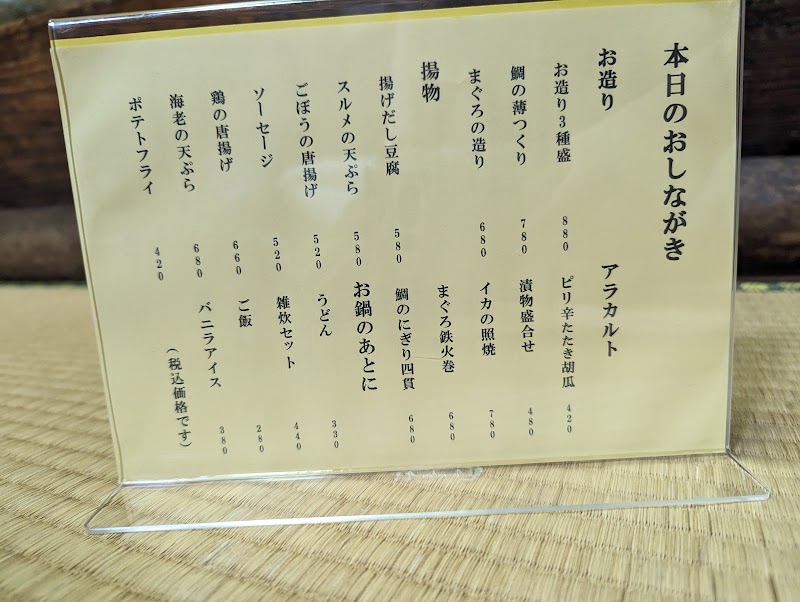 本日のおしながき
お造り
お造り3種盛 880
鯛の薄つくり 780
まぐろの造り 680
揚物
揚げだし豆腐 580
スルメの天ぷら 580
ごぼうの唐揚げ 520
ソーセージ 520
鶏の唐揚げ 660
海老の天ぷら 680
ポテトフライ 420
アラカルト
ピリ辛たたき胡瓜 420
漬物盛合せ 480
イカの照焼 780
まぐろ鉄火巻 680
鯛のにぎり四貫 680
お鍋のあとに
うどん 330
雑炊セット 440
ご飯 280
バニラアイス 380
(税込価格です)